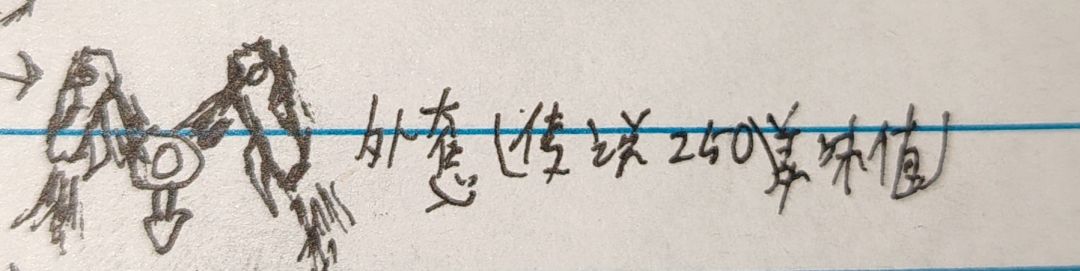 外卷(传送250美味值)